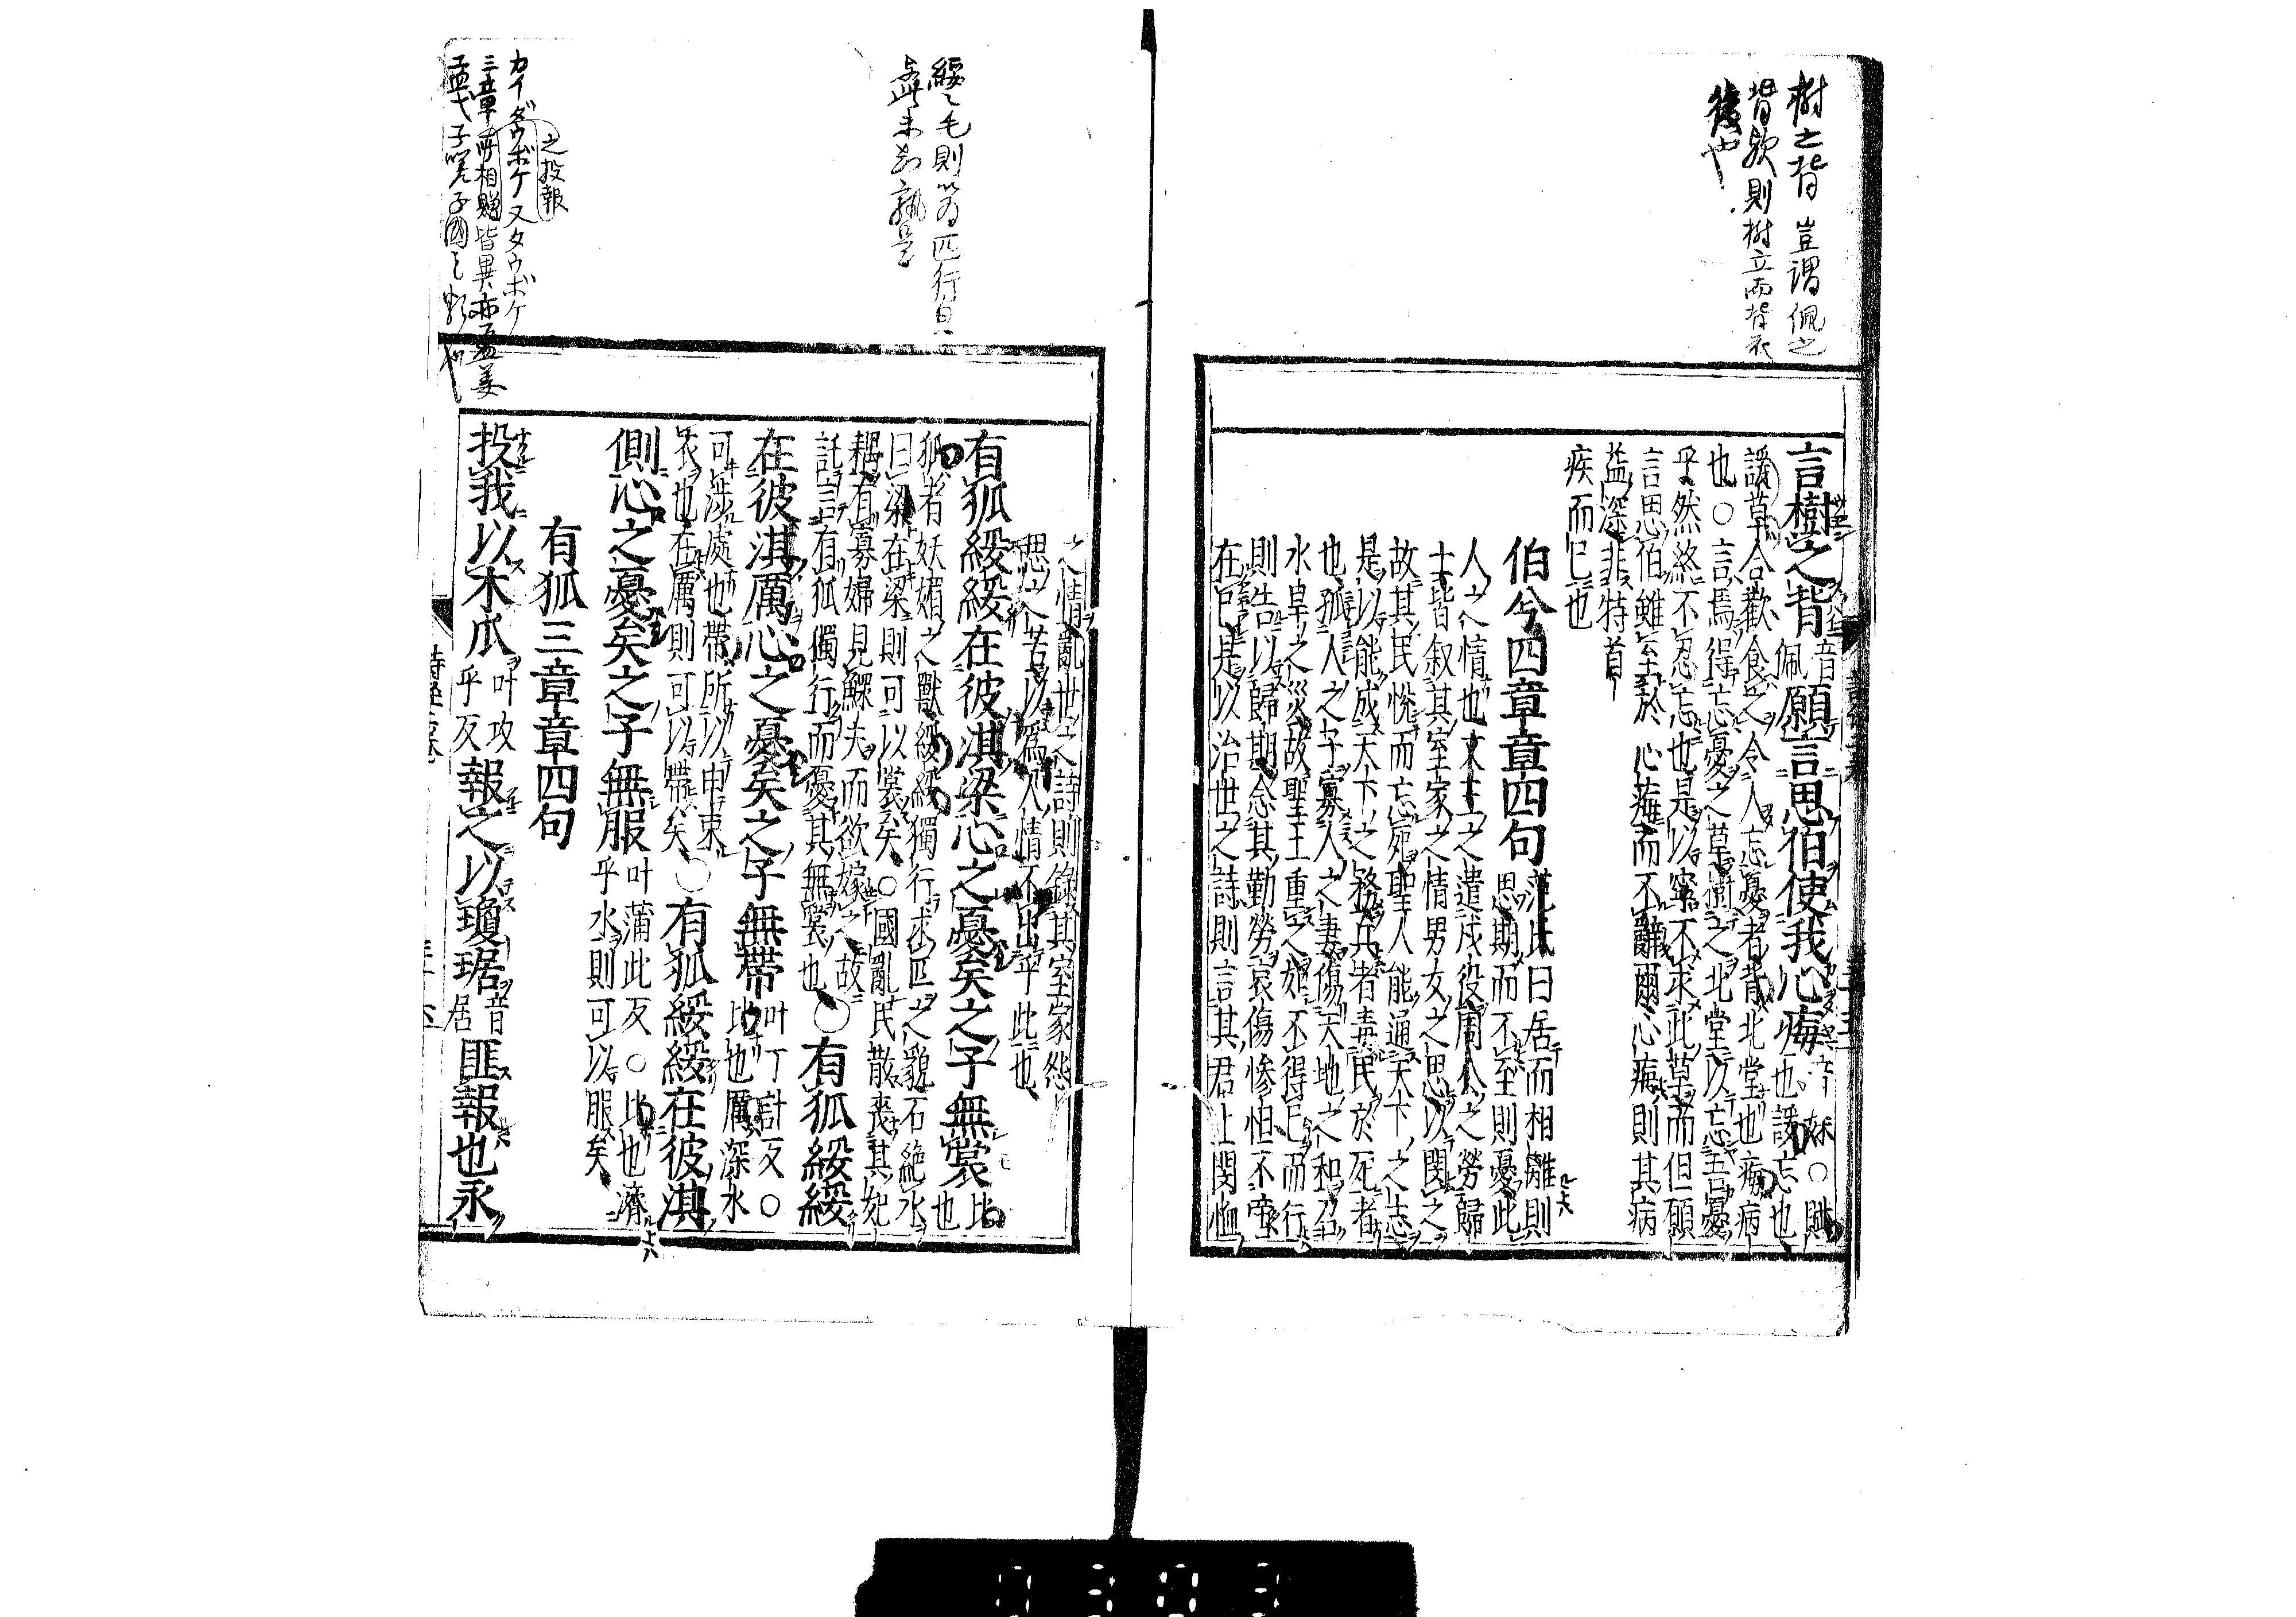 樹之背豈謂佩之
背歟則樹立而背衣
後也
言樹之背音佩願言思伯使我心痗音妹○賦也諼忘也
諼草合歡食之令人忘憂者背北堂也痗病
也○言焉得忘憂之草樹之北堂以忘吾憂
乎然終不忍忘也是以寧不求此草而但願
言思伯雖至於心痗而不辭爾心痗則其病
益深非特首
疾而已也
伯兮四章章四句范氏曰居而相離則思期而不至則憂此
人之情也文王之遣戍役周公之勞歸
士皆叙其室家之情男女之思以閔之
故其民悅而忘死聖人能通天下之志
是以能成天下之務兵者毒民於死者
也孤人之子寡人之妻傷天地之和召
水旱之災故聖王重之如不得已而行
則告以歸期念其勤勞哀傷慘怛不啻
在已是以治世之詩則言其君上閔恤
之情亂世之詩則錄其室家怨
思之苦以爲人情不出乎此也
綏之毛則以為匹行皃
有狐綏綏在彼淇梁心之憂矣之子無裳比也
狐者妖媚之獸綏綏獨行求匹之貌石絶水
曰梁在梁則可以裳矣○國亂民散喪其妃
耦有寡婦見鰥夫而欲嫁之故
託言有狐獨行而憂其無裳也○有狐綏綏
在彼淇厲心之憂矣之子無帶叶丁計反○比也厲深水
可涉處也帶所以申束
衣也在厲則可以帶矣○有狐綏綏在彼淇
側心之憂矣之子無服叶蒲北反○比也濟乎水則可以服矣
有狐三章章四句
之投報
カイダウボケ又タウボケ
三章所相贈皆異亦孟姜
投我以木瓜叶攻乎反報之以瓊琚音居匪報也永